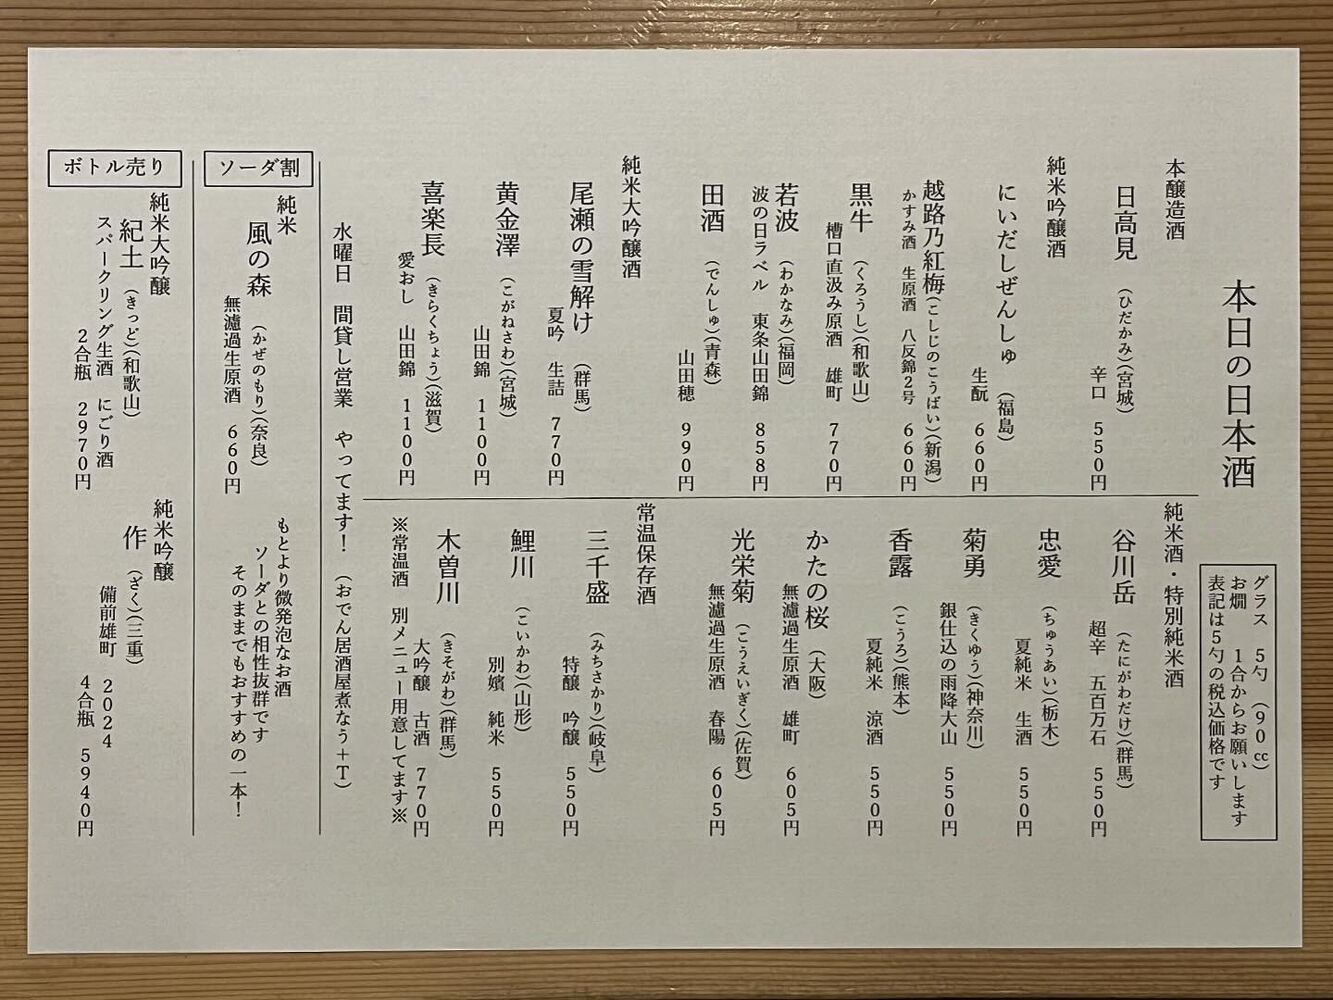 本日の日本酒
グラス　5勺　(90㏄)
お燗　1合からお願いします
表記は5勺の税込価格です
本醸造酒
日高見　(ひだかみ)(宮城)
辛口　550円
純米吟醸酒
にいだしぜんしゅ　(福島)
生酛　660円
越路乃紅梅(こしじのこうばい)(新潟)
かすみ酒　生原酒　八反錦2号　660円
黒牛　(くろうし)(和歌山)
槽口直汲み原酒　雄町　770円
若波　(わかなみ)(福岡)
波の日ラベル　東条山田錦　858円
田酒　(でんしゅ)(青森)
山田穂　990円
純米大吟醸酒
尾瀬の雪解け　(群馬)
夏吟　生詰　770円
黄金澤　(こがねさわ)(宮城)
山田錦　1100円
喜楽長　(きらくちょう)(滋賀)
愛おし　山田錦　1100円
純米酒・特別純米酒
谷川岳　(たにがわだけ)(群馬)
超辛　五百万石　550円
忠愛　(ちゅうあい)(栃木)
夏純米　生酒　550円
菊勇　(きくゆう)(神奈川)
銀仕込の雨降大山　550円
香露　(こうろ)(熊本)
夏純米　涼酒　550円
かたの桜　(大阪)
無濾過生原酒　雄町　605円
光栄菊　(こうえいぎく)(佐賀)
無濾過生原酒　春陽　605円
常温保存酒
三千盛　(みちさかり)(岐阜)
特醸　吟醸　550円
鯉川　(こいかわ)(山形)
別嬪　純米　550円
木曽川　(きそがわ)(群馬)
大吟醸　古酒　770円
※常温酒　別メニュー用意してます※
水曜日　間貸し営業　やってます!　(おでん居酒屋煮なう+T)
ソーダ割
純米
風の森　(かぜのもり)(奈良)
無濾過生原酒　660円
もとより微発泡なお酒
ソーダとの相性抜群です
そのままでもおすすめの一本!
ボトル売り
純米大吟醸
紀土　(きっど)(和歌山)
スパークリング生酒　にごり酒
2合瓶　2970円
純米吟醸
作　(ざく)(三重)
備前雄町　2024
4合瓶　5940円